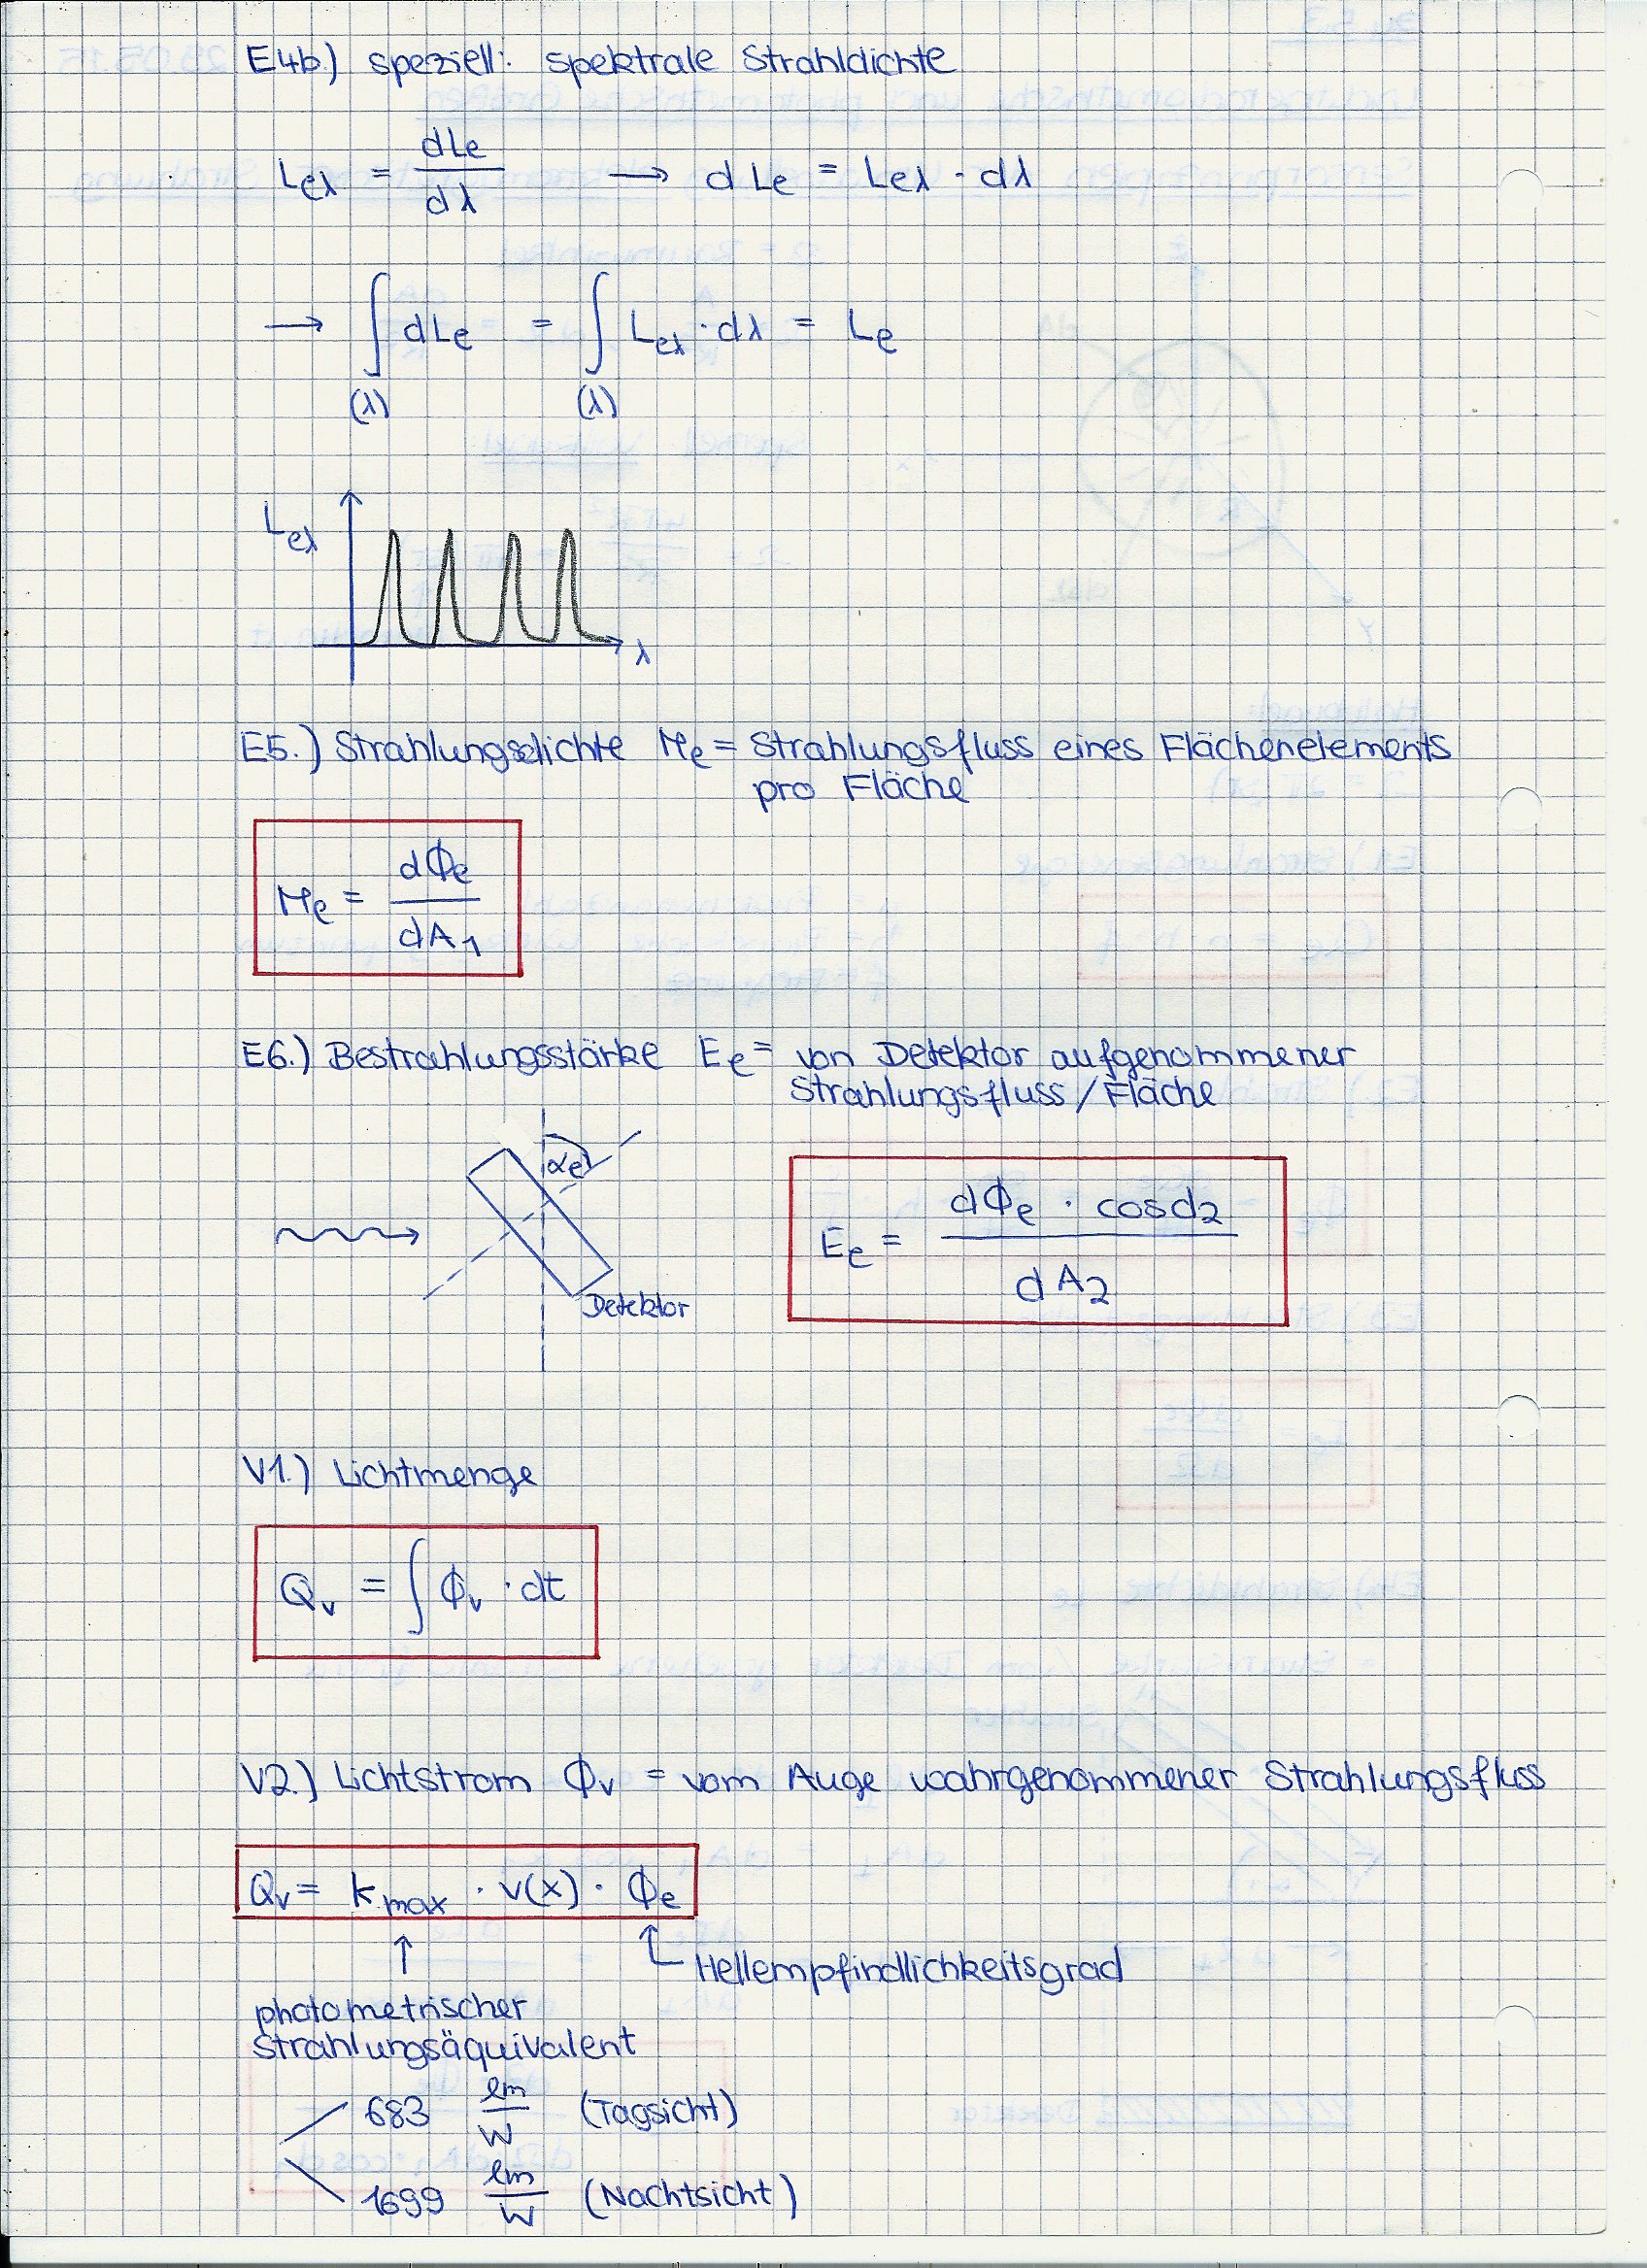 E4b.) speziell: spektrale Strahldichte
Leλ = dLe/dλ → dLe = Leλ · dλ
→ ∫(λ) dLe = ∫(λ) Leλ · dλ = Le
Leλ
λ
E5.) Strahlungsdichte Me = Strahlungsfluss eines Flächenelements
pro Fläche
Me = dΦe/dA1
E6.) Bestrahlungsstärke Ee = von Detektor aufgenommener
Strahlungsfluss/Fläche
αe
Ee = dΦe · cosd2/dA2
Detektor
V1.) Lichtmenge
Qv = ∫ Φv · dt
V2.) Lichtstrom Φv = vom Auge wahrgenommener Strahlungsfluss
Qv = kmax · v(x) · Φe
↑ ↑ Hellempfindlichkeitsgrad
photometrischer
Strahlungsäquivalent
683 lm/W (Tagsicht)
1699 lm/W (Nachtsicht)